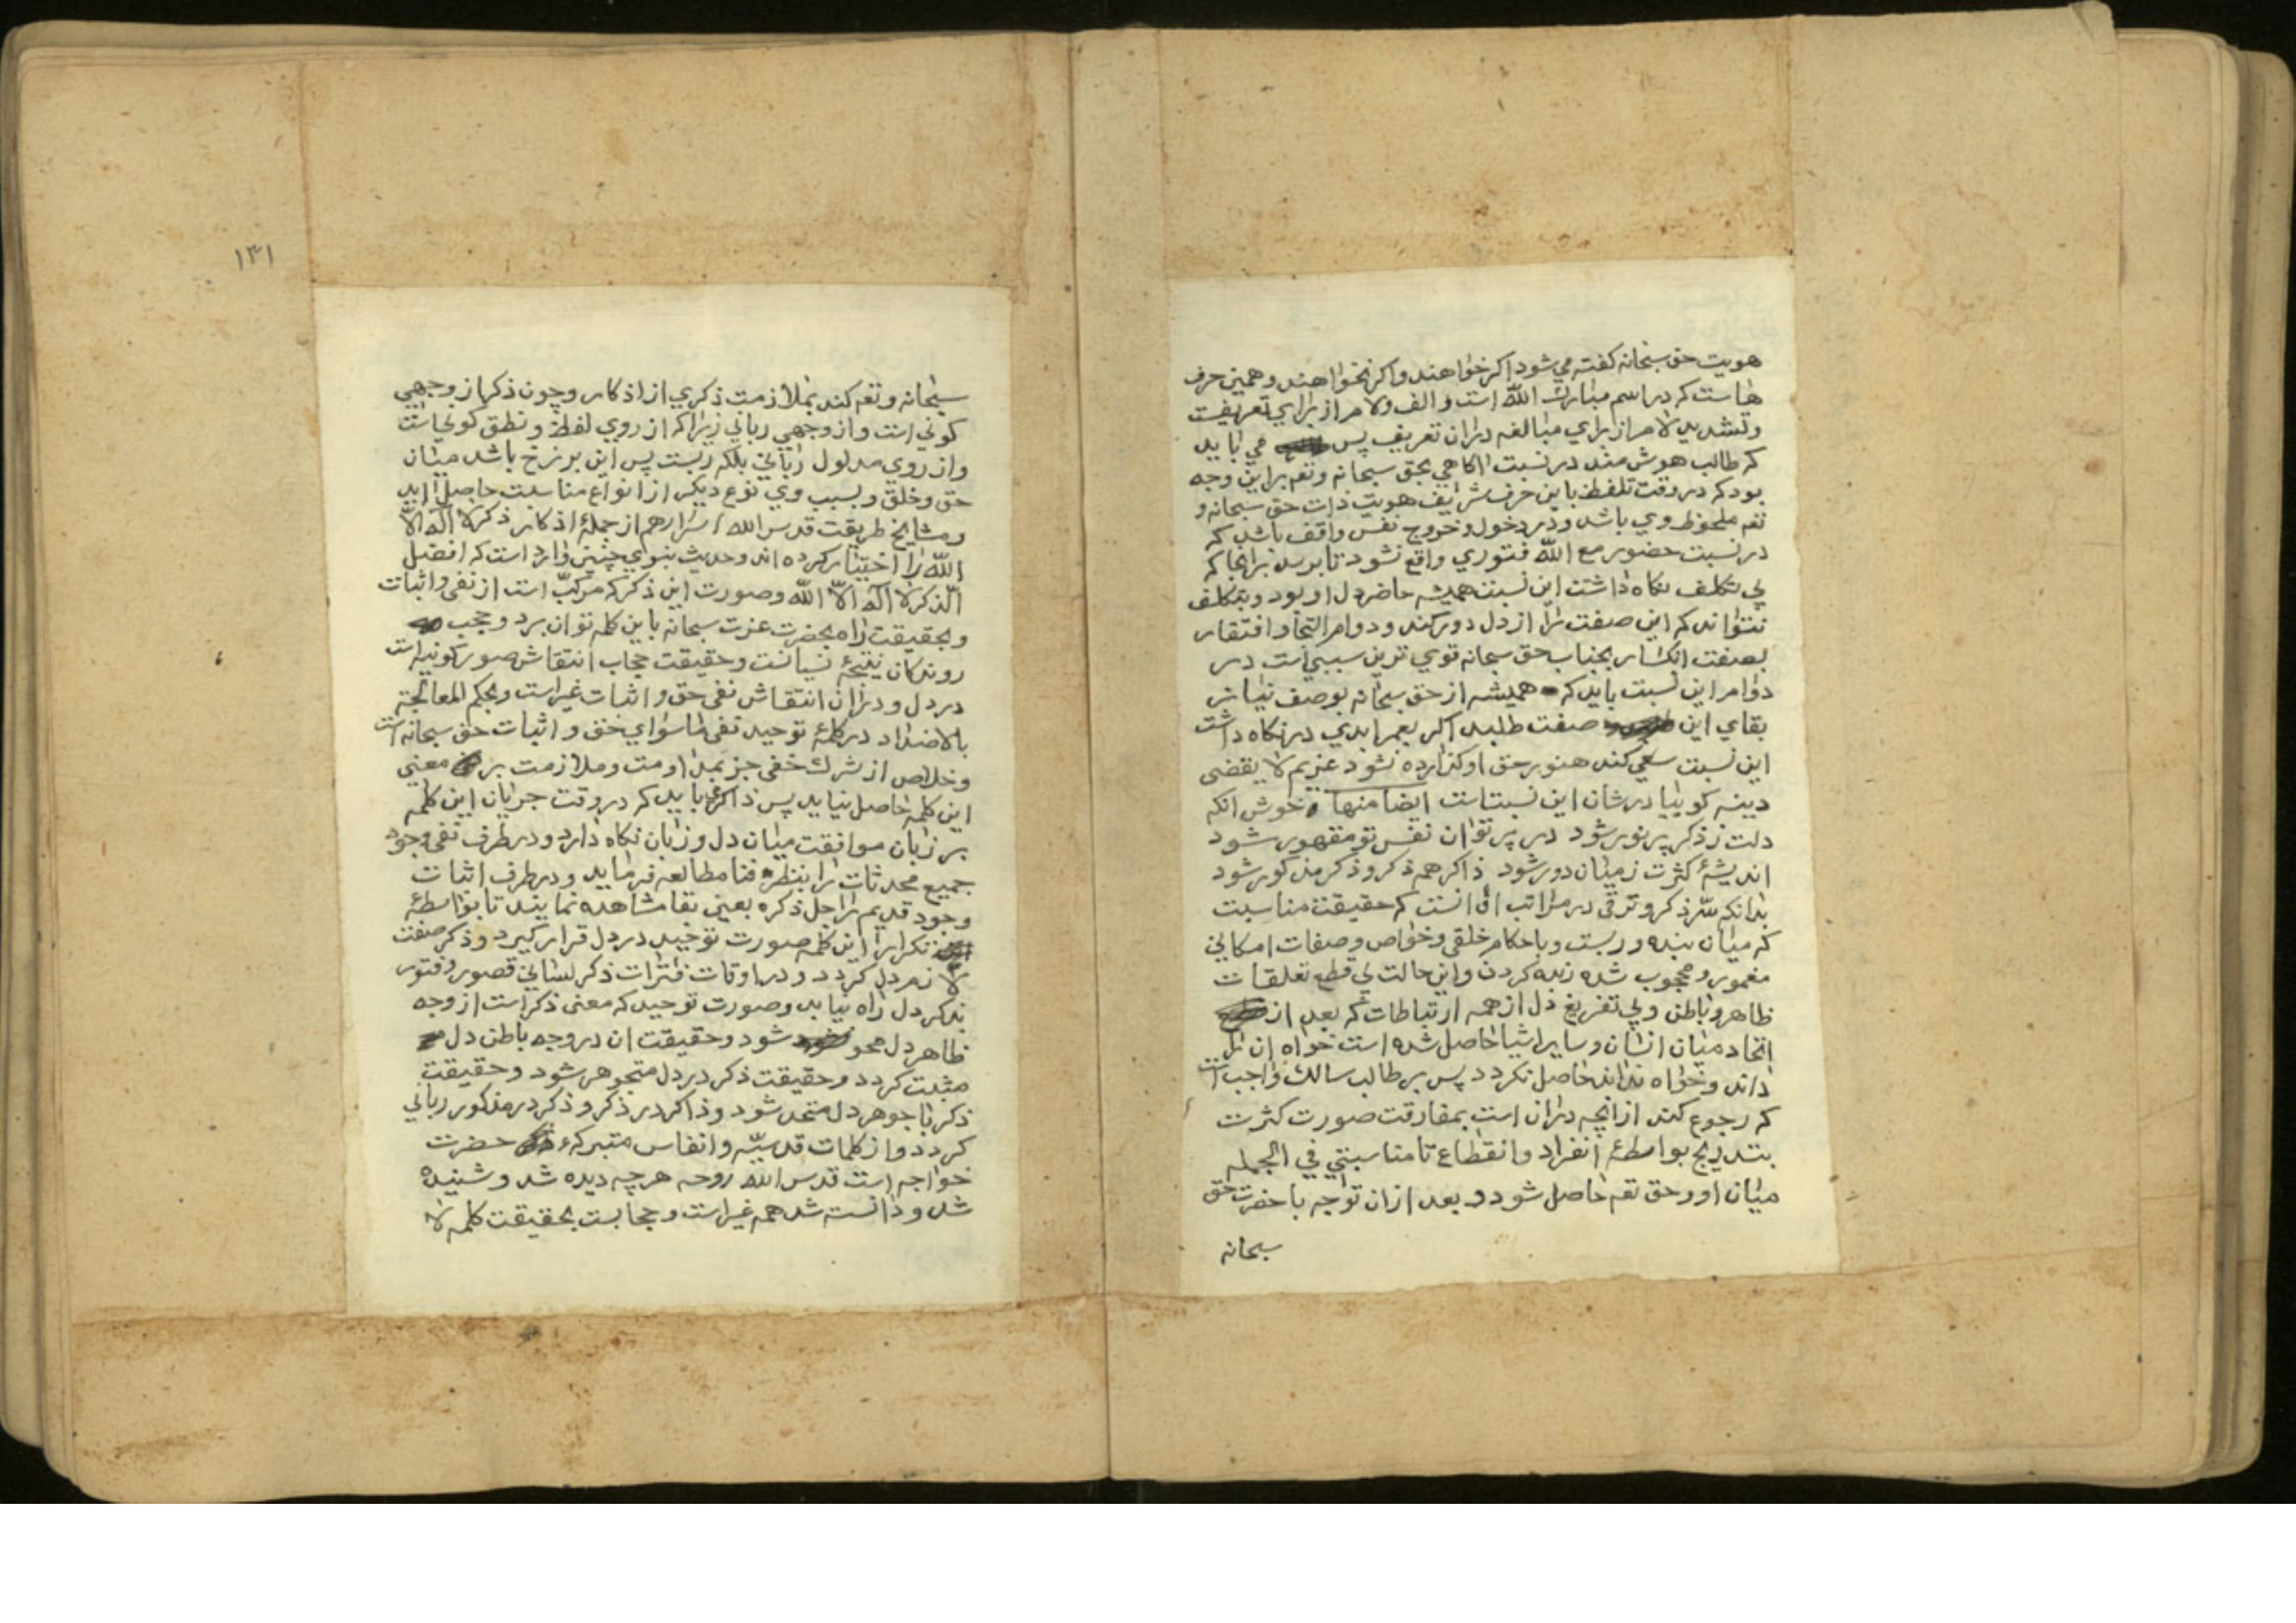 هويت حق سبحانه كفته مي شود اكر خواهند واكر نخواهند وهمين حرف
هاست كه در اسم مبارك الله است والف ولام از براي تعريفست
وتشديد لام از براي مبالغه در ان تعريف پس مي بايد
كه طالب هوش مند در نسبت اكاهي بحق سبحانه وتعه براين وجه
بود كه در وقت تلفظ باين حرف شريف هويت ذات حق سبحانه و
تعه ملحوظ وي باشد ودر دخول وخروج نفس واقف باشد كه
در نسبت حضور مع الله فتوري واقع نشود تا برسد بر انجا كه
بي تكلف نكاه داشت اين نسبت هميشه حاضر دل او بود وبتكلف
نتواند كه اين صفت را از دل دور كند ودوام التجا وافتقار
بصفت انكسار بجناب حق سبحانه قوي ترين سببي است در
دوام اين نسبت بايد كه هميشه از حق سبحانه بوصف نياز
بقاي اين صفت طلبد اكر بعمر ابدي در نكاه داشت
اين نسبت سعي كند هنوز حق او كذارده نشود غريم لا يقضى
دينه كوييا در شان اين نسبتاست ايضا منها خوش انكه
دلت ز ذكر پر نور شود در پرتو ان نفس تو مقهور شود
انديشهٔ كثرت ز ميان دور شود ذاكر همه ذكر وذكر مذكور شود
بدانكه سّر ذكر وترقى در مراتب ان انست كه حقيقت مناسبت
كه ميان بنده وربست وباحكام خلقى وخواص وصفات امكاني
مغمور ومحجوب شده زنده كردن واين حالت بي قطع تعلقات
ظاهر وباطن وبي تفريغ دل از همه ارتباطات كه بعد از
اتحاد ميان انسان وساير اشيا حاصل شده است خواه ان را
داند وخواه نداند حاصل نكردد پس بر طالب سالك واجب است
كه رجوع كند از انچه در ان است بمفارقت صورت كثرت
بتدريج بواسطهٔ انفراد وانقطاع تا مناسبتي في الجمله
ميان او وحق تعه حاصل شود وبعد از ان توجه با حضرت حق
سبحانه
١٣١
سبحانه وتعه كند بملازمت ذكري از اذكار وچون ذكر از وجهي
كوني است واز وجهي رباني زيرا كه از روي لفظ ونطق كوني است
واز روي مدلول رباني بلكه ربست پس اين برزخ باشد ميان
حق وخلق وبسبب وي نوع ديكر از انواع مناسبت حاصل ايد
ومشايخ طريقت قدس الله اسرارهم از جملهٔ اذكار ذكر لا اله الا
الله را اختيار كرده اند وحديث نبوي چنين وارد است كه افضل
الذكر لا اله الا الله وصورت اين ذكر كه مركبّ است از نفى واثبات
وبحقيقت راه بحضرت عزت سبحانه باين كلمه توان برد وحجب
روندكان نتيجهٔ نسيانست وحقيقت حجاب انتقاش صور كونيه است
در دل ودر ان انتقاش نفى حق واثبات غيراست وبحكم المعالجة
بالاضداد در كلمهٔ توحيد نفى ماسواي حق واثبات حق سبحانه است
وخلاص از شرك خفى جز بمداومت وملازمت بر معني
اين كلمه حاصل نيايد پس ذاكر مي بايد كه در وقت جريان اين كلمه
بر زبان موافقت ميان دل وزبان نكاه دارد ودر طرف نفى وجود
جميع محدثات را بنظره فنا مطالعه فرمايد ودر طرف اثبات
وجود قديم را جل ذكره بعين بقا مشاهده نمايند تا بواسطهٔ
تكرار اين كلمه صورت توحيد در دل قرار كيرد وذكر صفت
لازم دل كردد ودر اوقات فترات ذكر لساني قصور وفتور
بذكر دل راه نيابد وصورت توحيد كه معنى ذكر است از وجه
ظاهر دل محو شود وحقيقت ان در وجه باطن دل
مثبت كردد وحقيقت ذكر در دل متجوهر شود وحقيقت
ذكر با جوهر دل متحد شود وذاكر در ذكر وذكر در مذكور رباني
كردد واز كلمات قدسيّه وانفاس متبركهٔ حضرت
خواجه است قدس الله روحه هرچه ديده شد وشنيده
شد ودانسته شد همه غيراست وحجابست بحقيقت كلمه لا